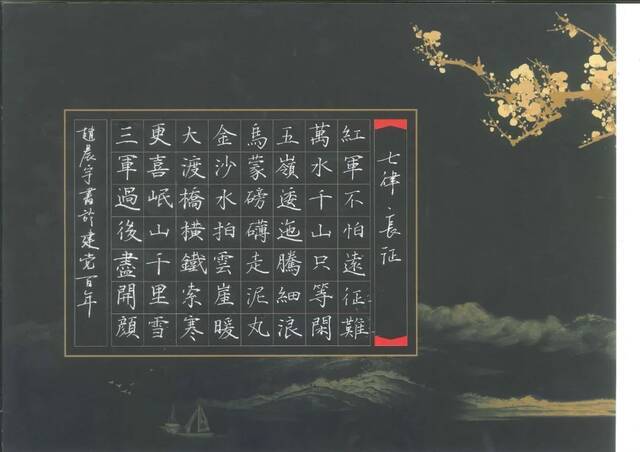 七律·長征
紅軍不怕遠征難
萬水千山只等閑
五嶺逶迤騰細浪
烏蒙磅礴走泥丸
金沙水拍雲崖暖
大渡橋橫鐵索寒
更喜岷山千里雪
三軍過後盡開顏
趙晨宇書於建党百年